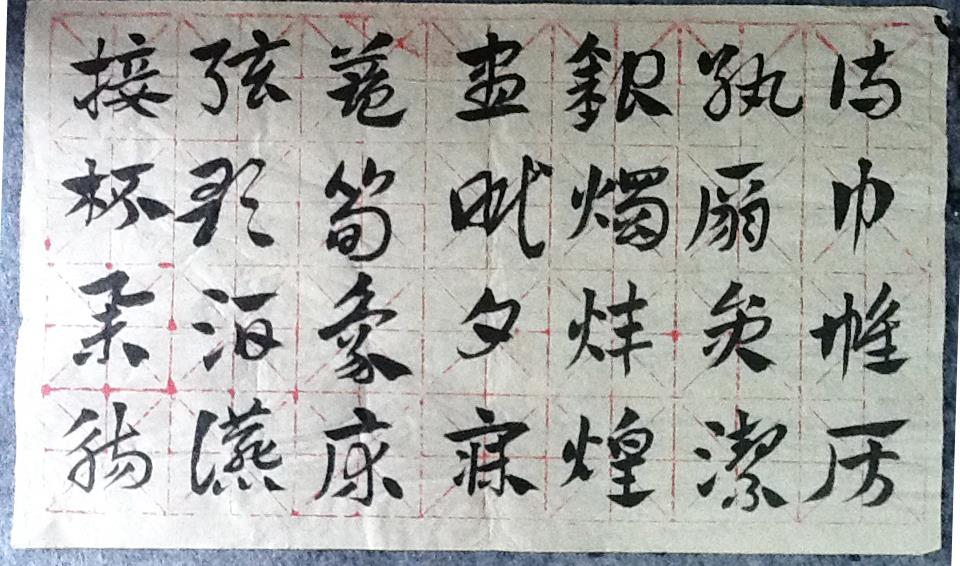 侍巾帷房
紈扇員潔
銀燭煒煌
晝眠夕寐
藍筍象床
弦歌酒讌
接杯舉觴